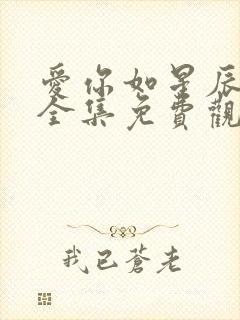 愛你如星辰
全集免費觀
我已蒼老